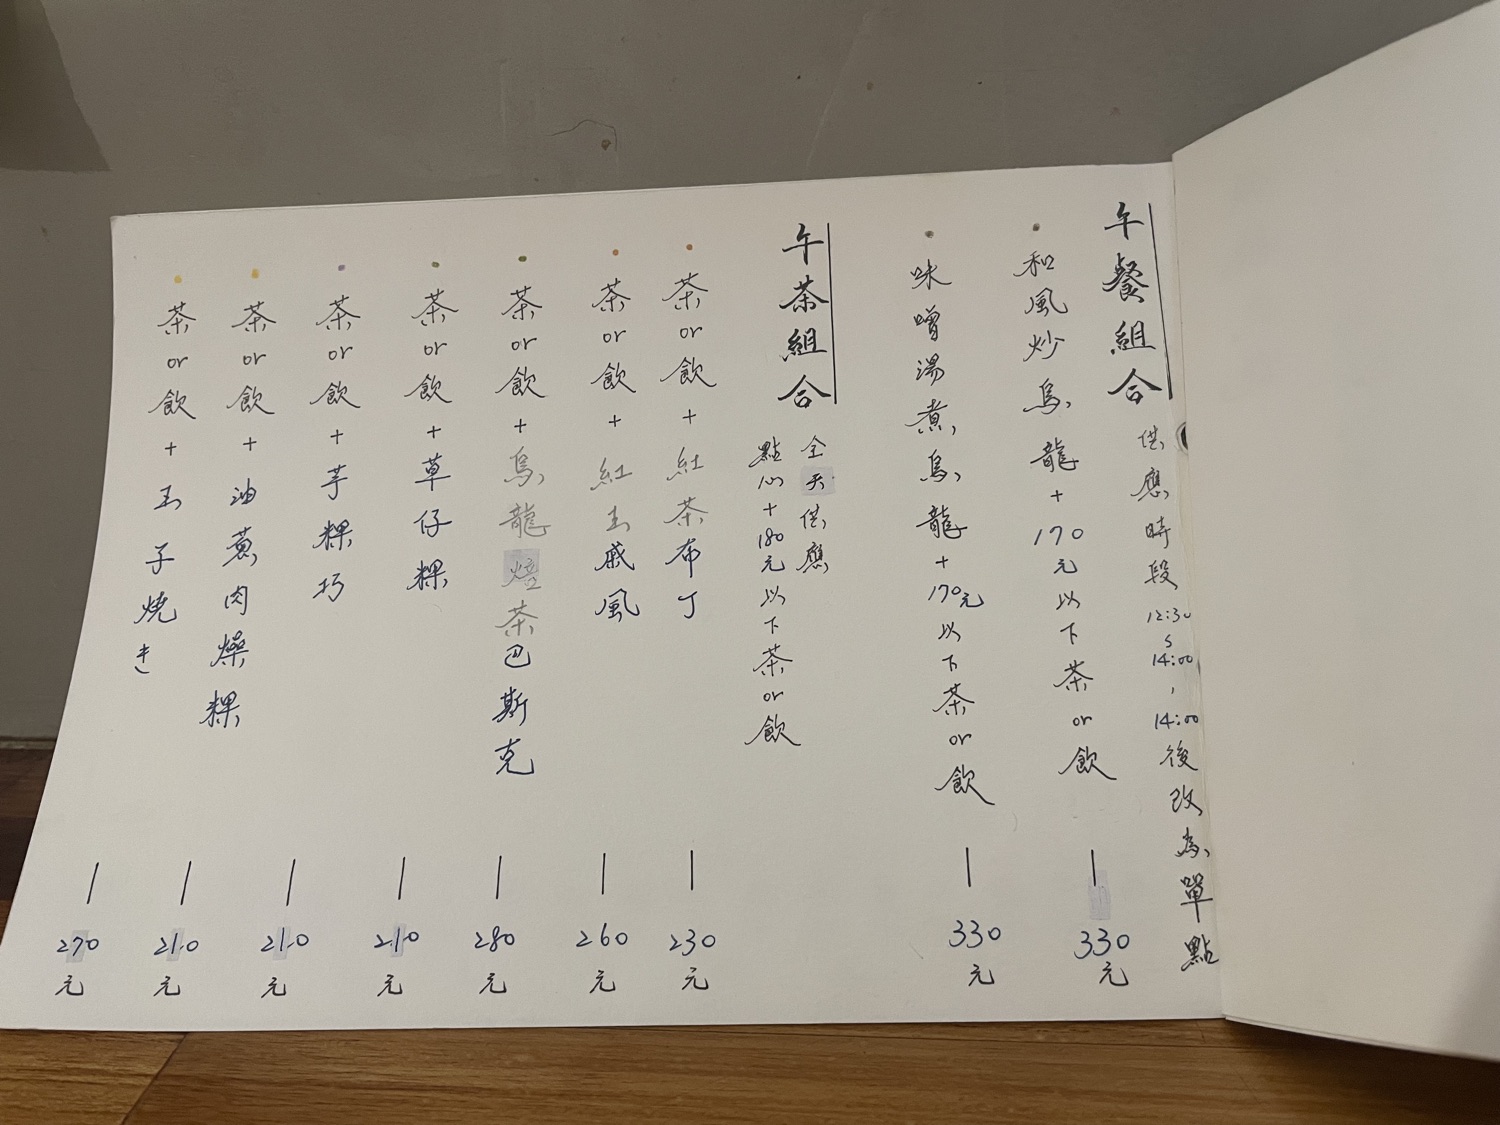 午餐組合 供應時段12:30~14:00,14:00後改為單點
和風炒烏龍+170元以下茶or飲 — 330元
味噌湯煮烏龍+170元以下茶or飲 — 330元
午茶組合 全天供應
點心+180元以下茶or飲
茶or飲+紅茶布丁 — 230元
茶or飲+紅玉戚風 — 260元
茶or飲+烏龍焙茶巴斯克 — 280元
茶or飲+草仔粿 — 210元
茶or飲+芋粿巧 — 210元
茶or飲+油蔥肉燥粿 — 210元
茶or飲+玉子焼き — 270元